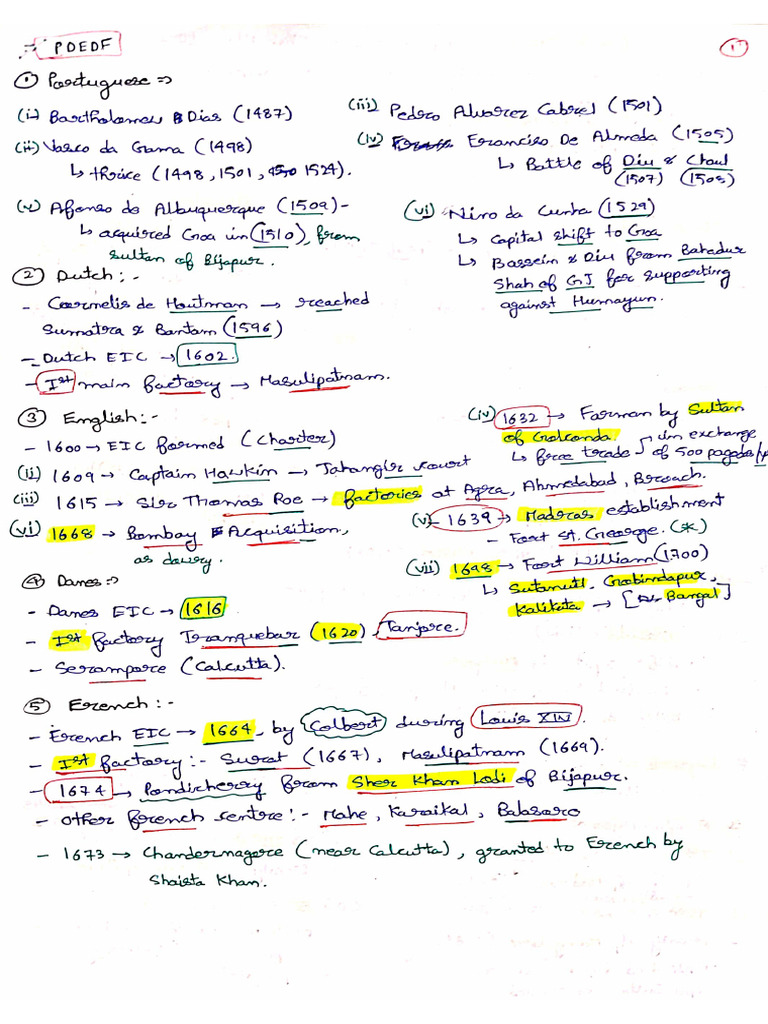 ∴ PDEDF
1
① Portuguese ⇒
(i) Bartholomeu Dias (1487)
(ii) Vasco da Gama (1498)
↳ thrice (1498, 1501, 1524).
(iii) Pedro Alvarez Cabrel (1501)
(iv) Francisco De Almeda (1505)
↳ Battle of Diu & Chaul
(1507) (1508)
(v) Afonso de Albuquerque (1509) -
↳ acquired Goa in (1510), from
sultan of Bijapur.
(vi) Nino da Cunha (1529)
↳ Capital shift to Goa
↳ Bassein & Diu from Bahadur
Shah of GJ for supporting
against Humayun.
② Dutch :-
- Cornelis de Houtman → reached
Sumatra & Bantam (1596)
- Dutch EIC → 1602.
- Ist main factory → Masulipatnam.
③ English :-
- 1600 → EIC formed (Charter)
(ii) 1609 → Captain Hawkin → Jahangir court
(iii) 1615 → Sir Thomas Roe → factories at Agra, Ahmedabad, Broach.
(iv) 1632 → Farman by Sultan
of Golconda.
↳ free trade in exchange
of 500 pagodas/
(v) 1639 → Madras establishment
- Fort St. George. (*)
(vi) 1668 → Bombay Acquisition,
as dowry.
(vii) 1698 → Fort William (1700)
↳ Sutanuti, Gobindapur,
Kalikata → [ Bangal]
④ Danes ⇒
- Danes EIC → 1616
- Ist factory Tranquebar (1620) - Tanjore.
- Serampore (Calcutta).
⑤ French :-
- French EIC → 1664, by Colbert during Louis XIV.
- Ist factory :- Surat (1667), Masulipatnam (1669).
- 1674 → Pondicherry from Sher Khan Lodi of Bijapur.
- Other french centre :- Mahe, Karaikal, Balasaro
- 1673 → Chandernagore (near Calcutta), granted to French by
Shaista Khan.